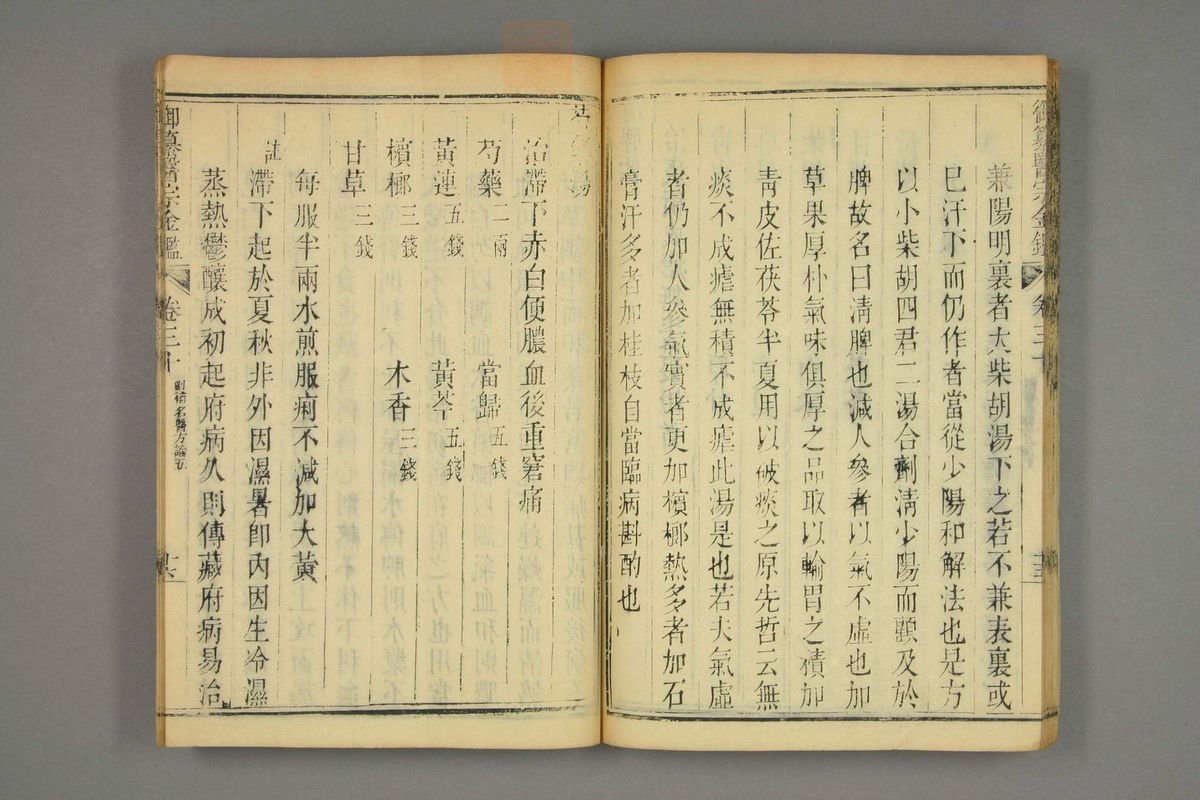 御纂醫宗金鑑 卷三十
兼陽明裏者大柴胡湯下之若不兼表裏或
已汗下而仍作者當從少陽和解法也是方
以小柴胡四君二湯合劑清少陽而顧及於
脾故名曰清脾也減人參者以氣不虛也加
草果厚朴氣味俱厚之品取以輸胃之積加
青皮佐茯苓半夏用以破痰之原先哲云無
痰不成瘧無積不成瘧此湯是也若夫氣虛
者仍加人參氣實者更加檳榔熱多者加石
膏汗多者加桂枝自當臨病斟酌也
湯
治滯下赤白便膿血後重窘痛
芍藥二兩 當歸五錢
黃連五錢 黃芩五錢
檳榔三錢 木香三錢
甘草三錢
每服半兩水煎服痢不減加大黃
滯下起於夏秋非外因濕暑卽內因生冷濕
蒸熱鬱釀成初起府病久則傳藏府病易治
御纂醫宗金鑑 卷三十 刪補名醫方論五